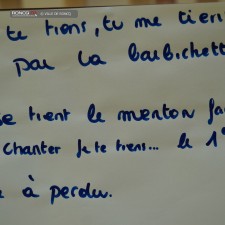 RONCQ
te tiens, tu me tien
par la barbichett
se tient le menton fa
Chanter Je te tiens... le 1
à perdu.